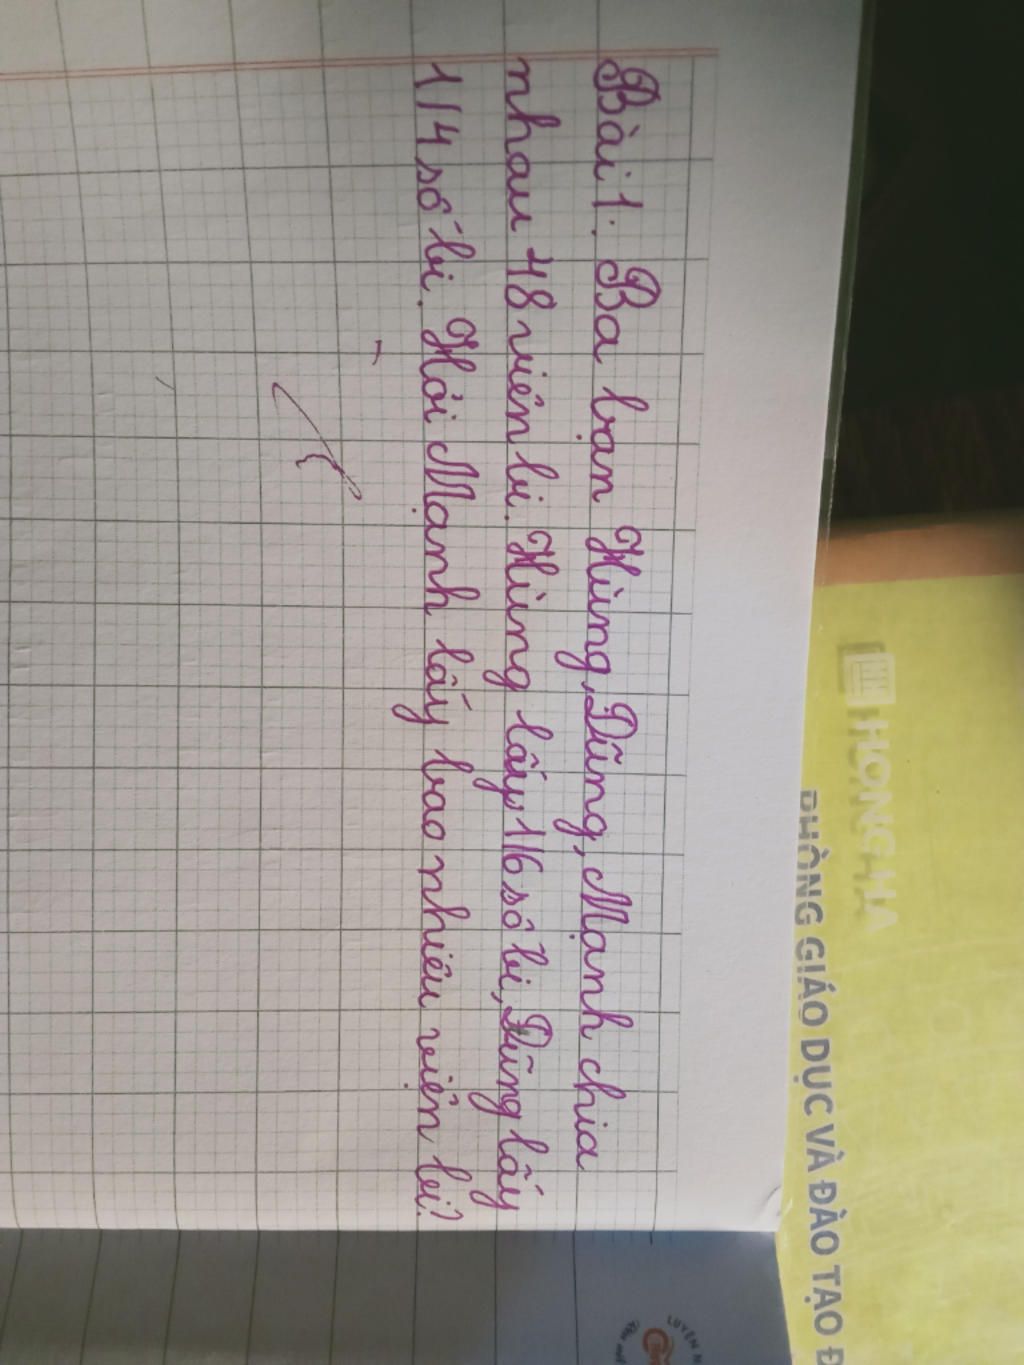 Bài 1: Ba bạn Hùng, Dũng, Mạnh chia
nhau 48 viên bi. Hùng lấy 1/6 số bi, Dũng lấy
1/4 số bi. Hỏi Mạnh lấy bao nhiêu viện bi?
HONG HA
PHÒNG GIÁO DỤC VÀ ĐÀO TẠO Đ